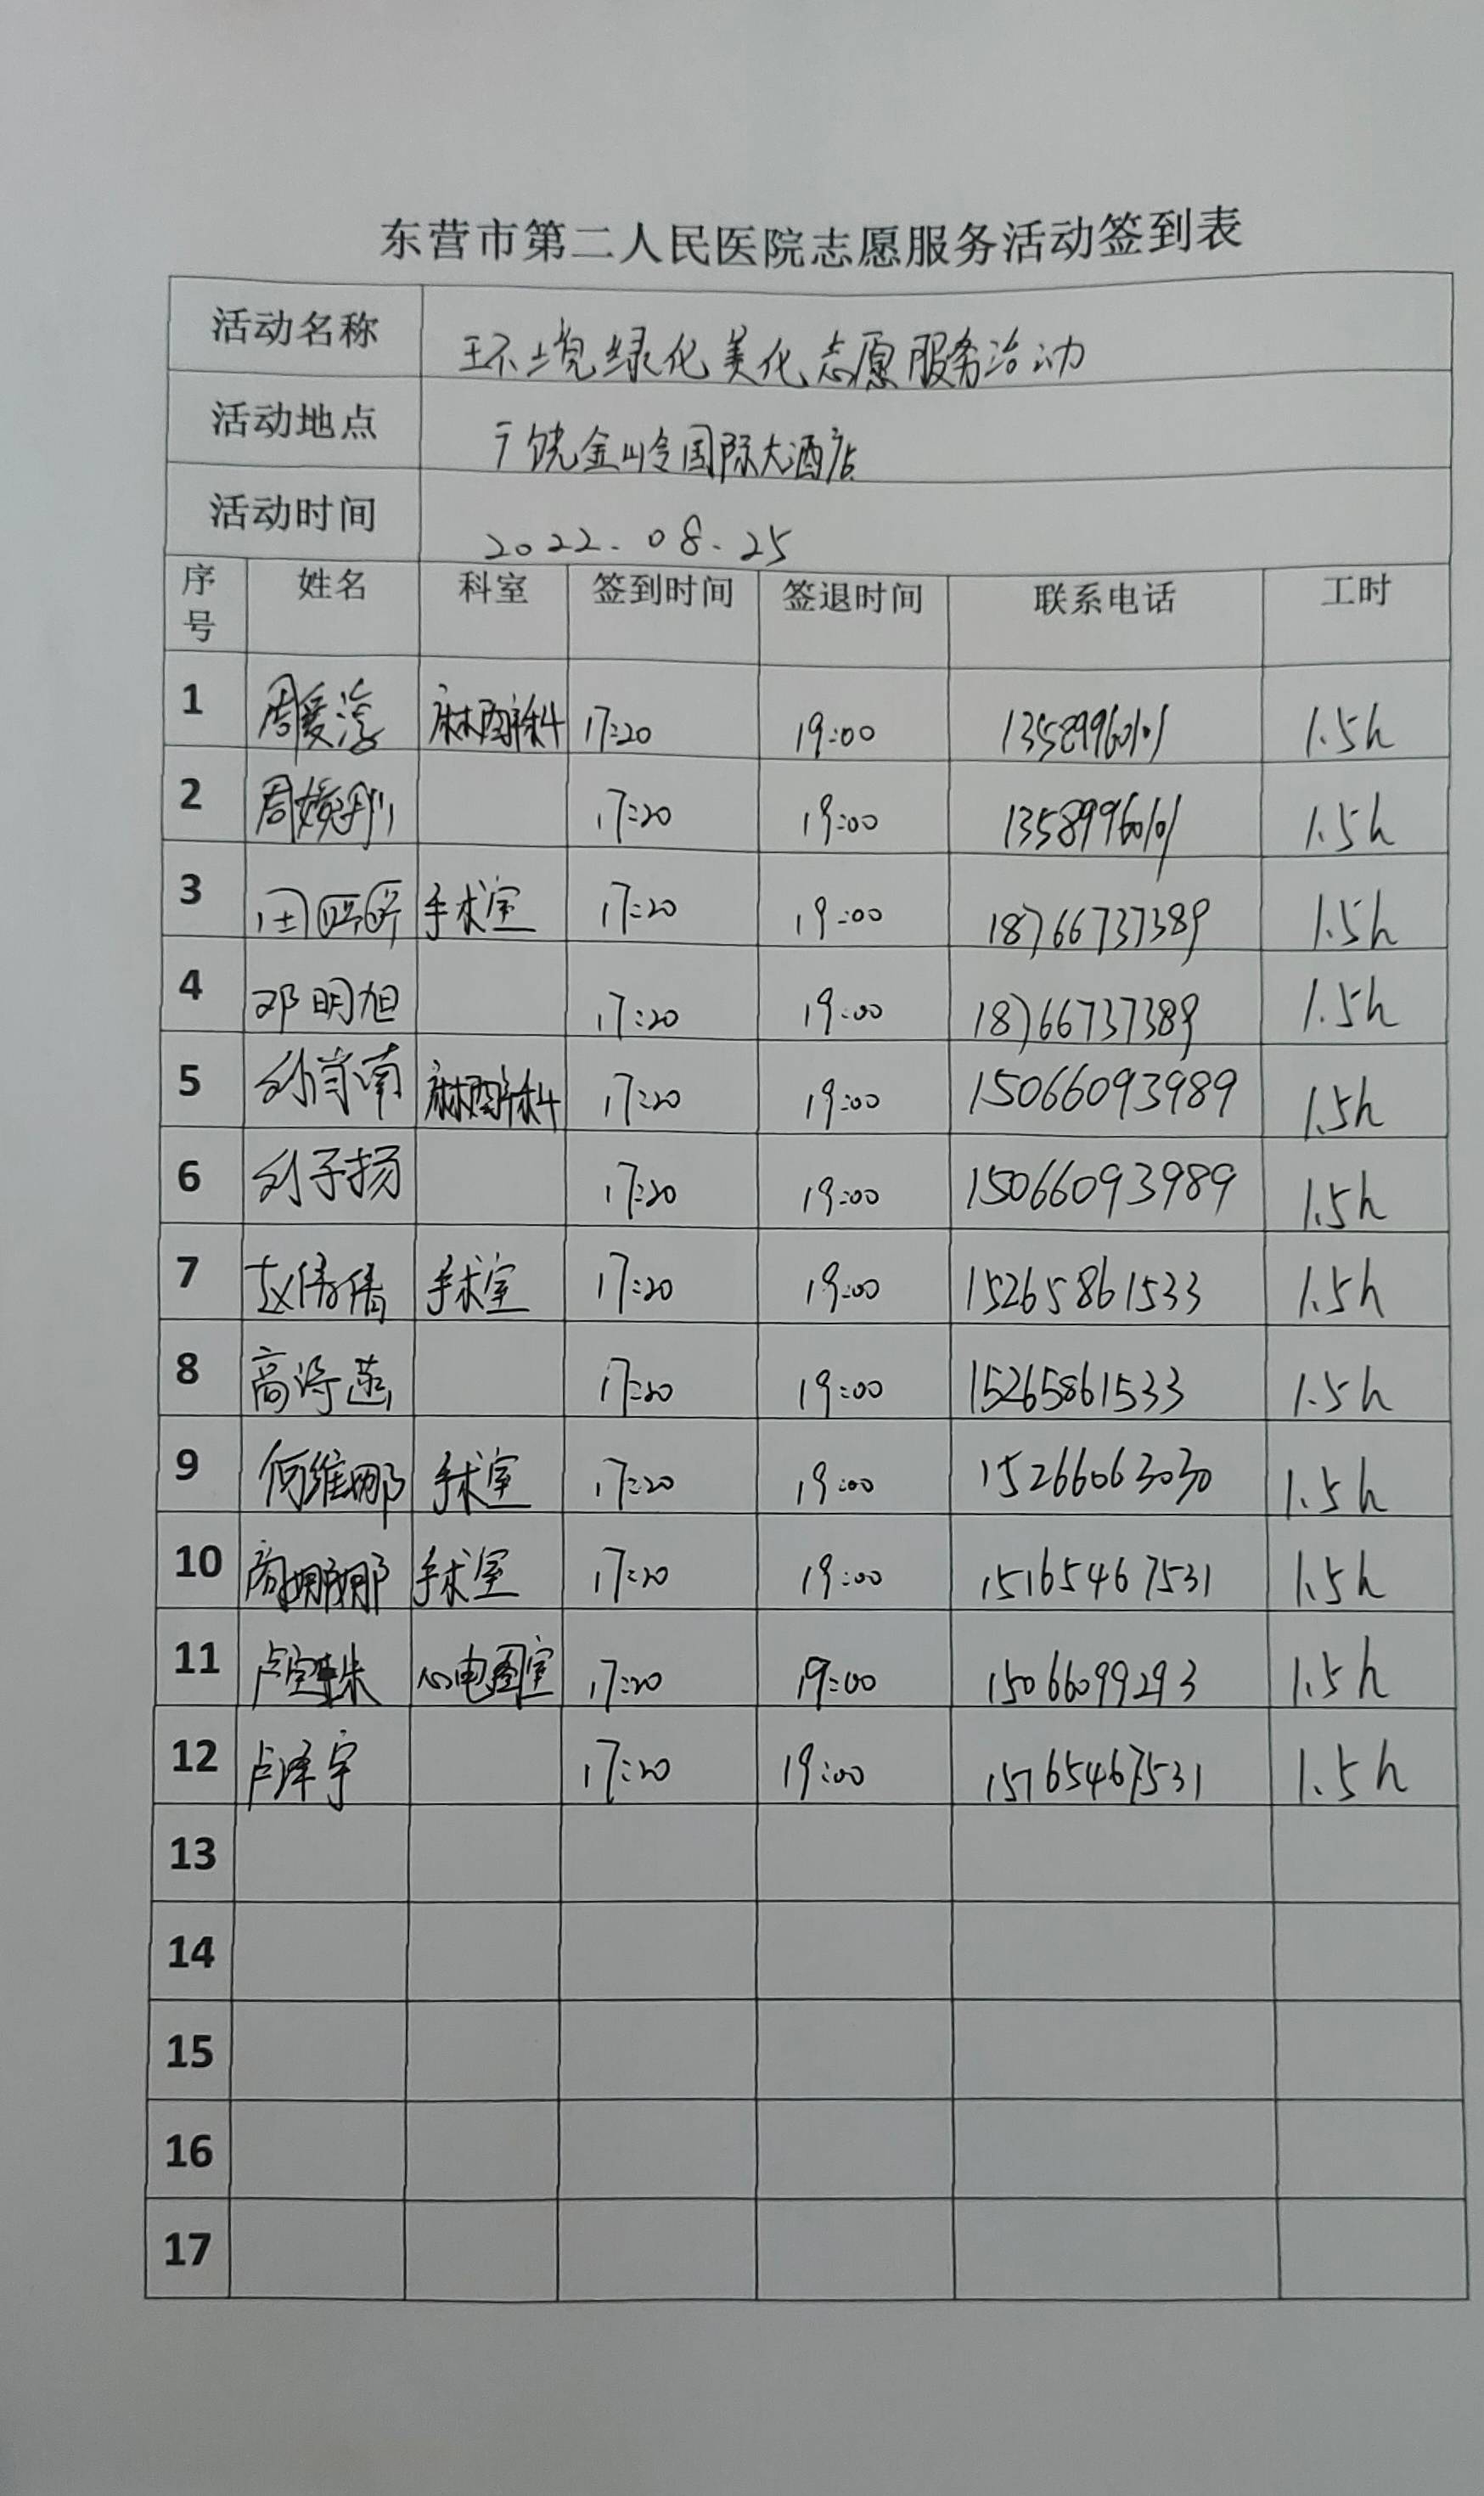 东营市第二人民医院志愿服务活动签到表
活动名称 环境绿化美化志愿服务活动
活动地点 广饶金岭国际大酒店
活动时间 2022.08.25
序号 姓名 科室 签到时间 签退时间 联系电话 工时
1 周爱淳 麻醉科 17:20 19:00 13589960101 1.5h
2 17:20 19:00 13589960101 1.5h
3 手术室 17:20 19:00 18766737389 1.5h
4 邓明旭 17:20 19:00 18766737389 1.5h
5 麻醉科 17:20 19:00 15066093989 1.5h
6 刘子扬 17:20 19:00 15066093989 1.5h
7 赵倩倩 手术室 17:20 19:00 15265861533 1.5h
8 17:20 19:00 15265861533 1.5h
9 何维娜 手术室 17:20 19:00 15266063030 1.5h
10 手术室 17:20 19:00 15165467531 1.5h
11 卢宝珠 心电图室 17:20 19:00 15066099293 1.5h
12 卢泽宇 17:20 19:00 15165467531 1.5h
13
14
15
16
17